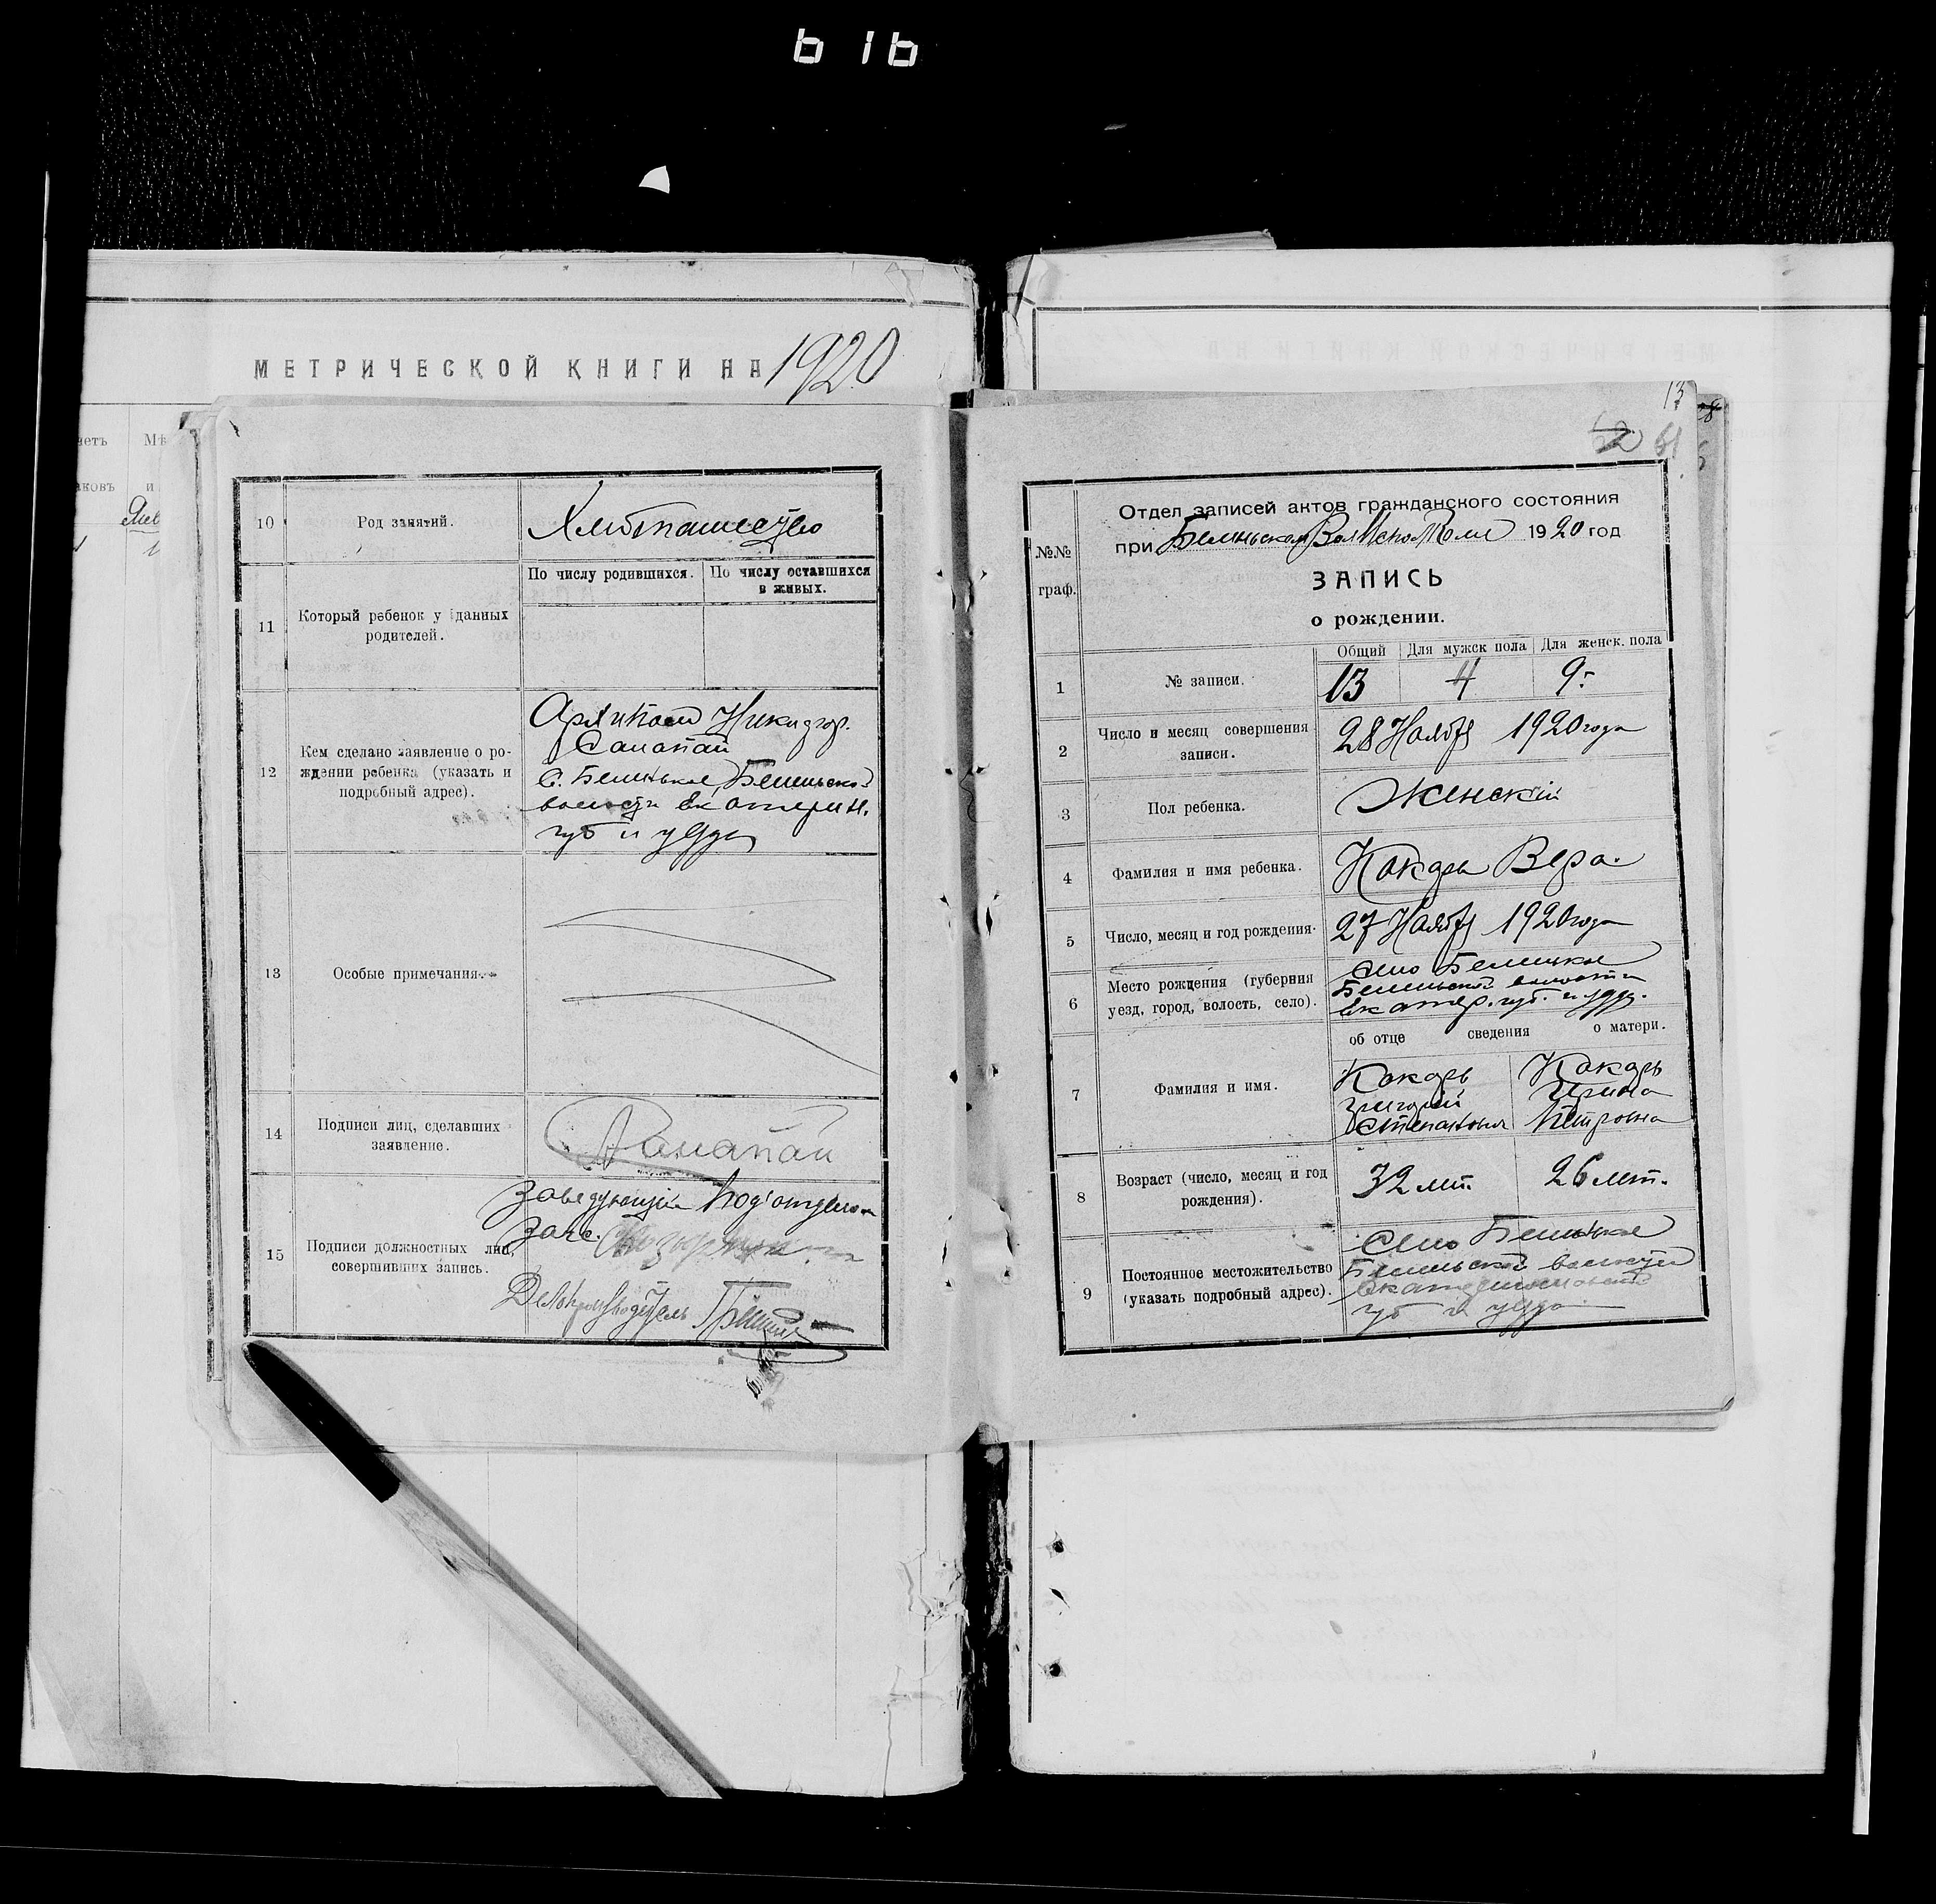 616
МЕТРИЧЕСКОЙ КНИГИ НА 1920
четъ
Мѣ
аковъ
и
10
Род занятий.
Хлебопашество
11
Который ребенок у данных
родителей.
По числу родившихся.
По числу оставшихся
в живых.
12
Кем сделано заявление о ро-
ждении ребенка (указать и
подробный адрес).
Никифор.
волости Екатерин.
губ и уезда
13
Особые примечания.
14
Подписи лиц, сделавших
заявление.
15
Подписи должностных лиц,
совершивших запись.
Заведующий Под'отделом
Делопроизводитель
13
62 61
№№
граф.
Отдел записей актов гражданского состояния
при 1920 год
ЗАПИСЬ
о рождении.
1
№ записи.
Общий
Для мужск пола
Для женск. пола
13
4
9-
2
Число и месяц совершения
записи.
28 Ноября 1920 года
3
Пол ребенка.
Женскій
4
Фамилия и имя ребенка.
Кокарь Вера.
5
Число, месяц и год рождения.
27 Ноября 1920 года
6
Место рождения (губерния
уезд, город, волость, село).
Село
волости
Екатер. губ. и уезд.
об отце сведения о матери.
7
Фамилия и имя.
Кокарь
Григорий
Степанович
Кокарь
Ирина
Петровна
8
Возраст (число, месяц и год
рождения).
32 лет.
26 лет.
9
Постоянное местожительство
(указать подробный адрес).
Село
волости
Екатеринославской
губ и уезда